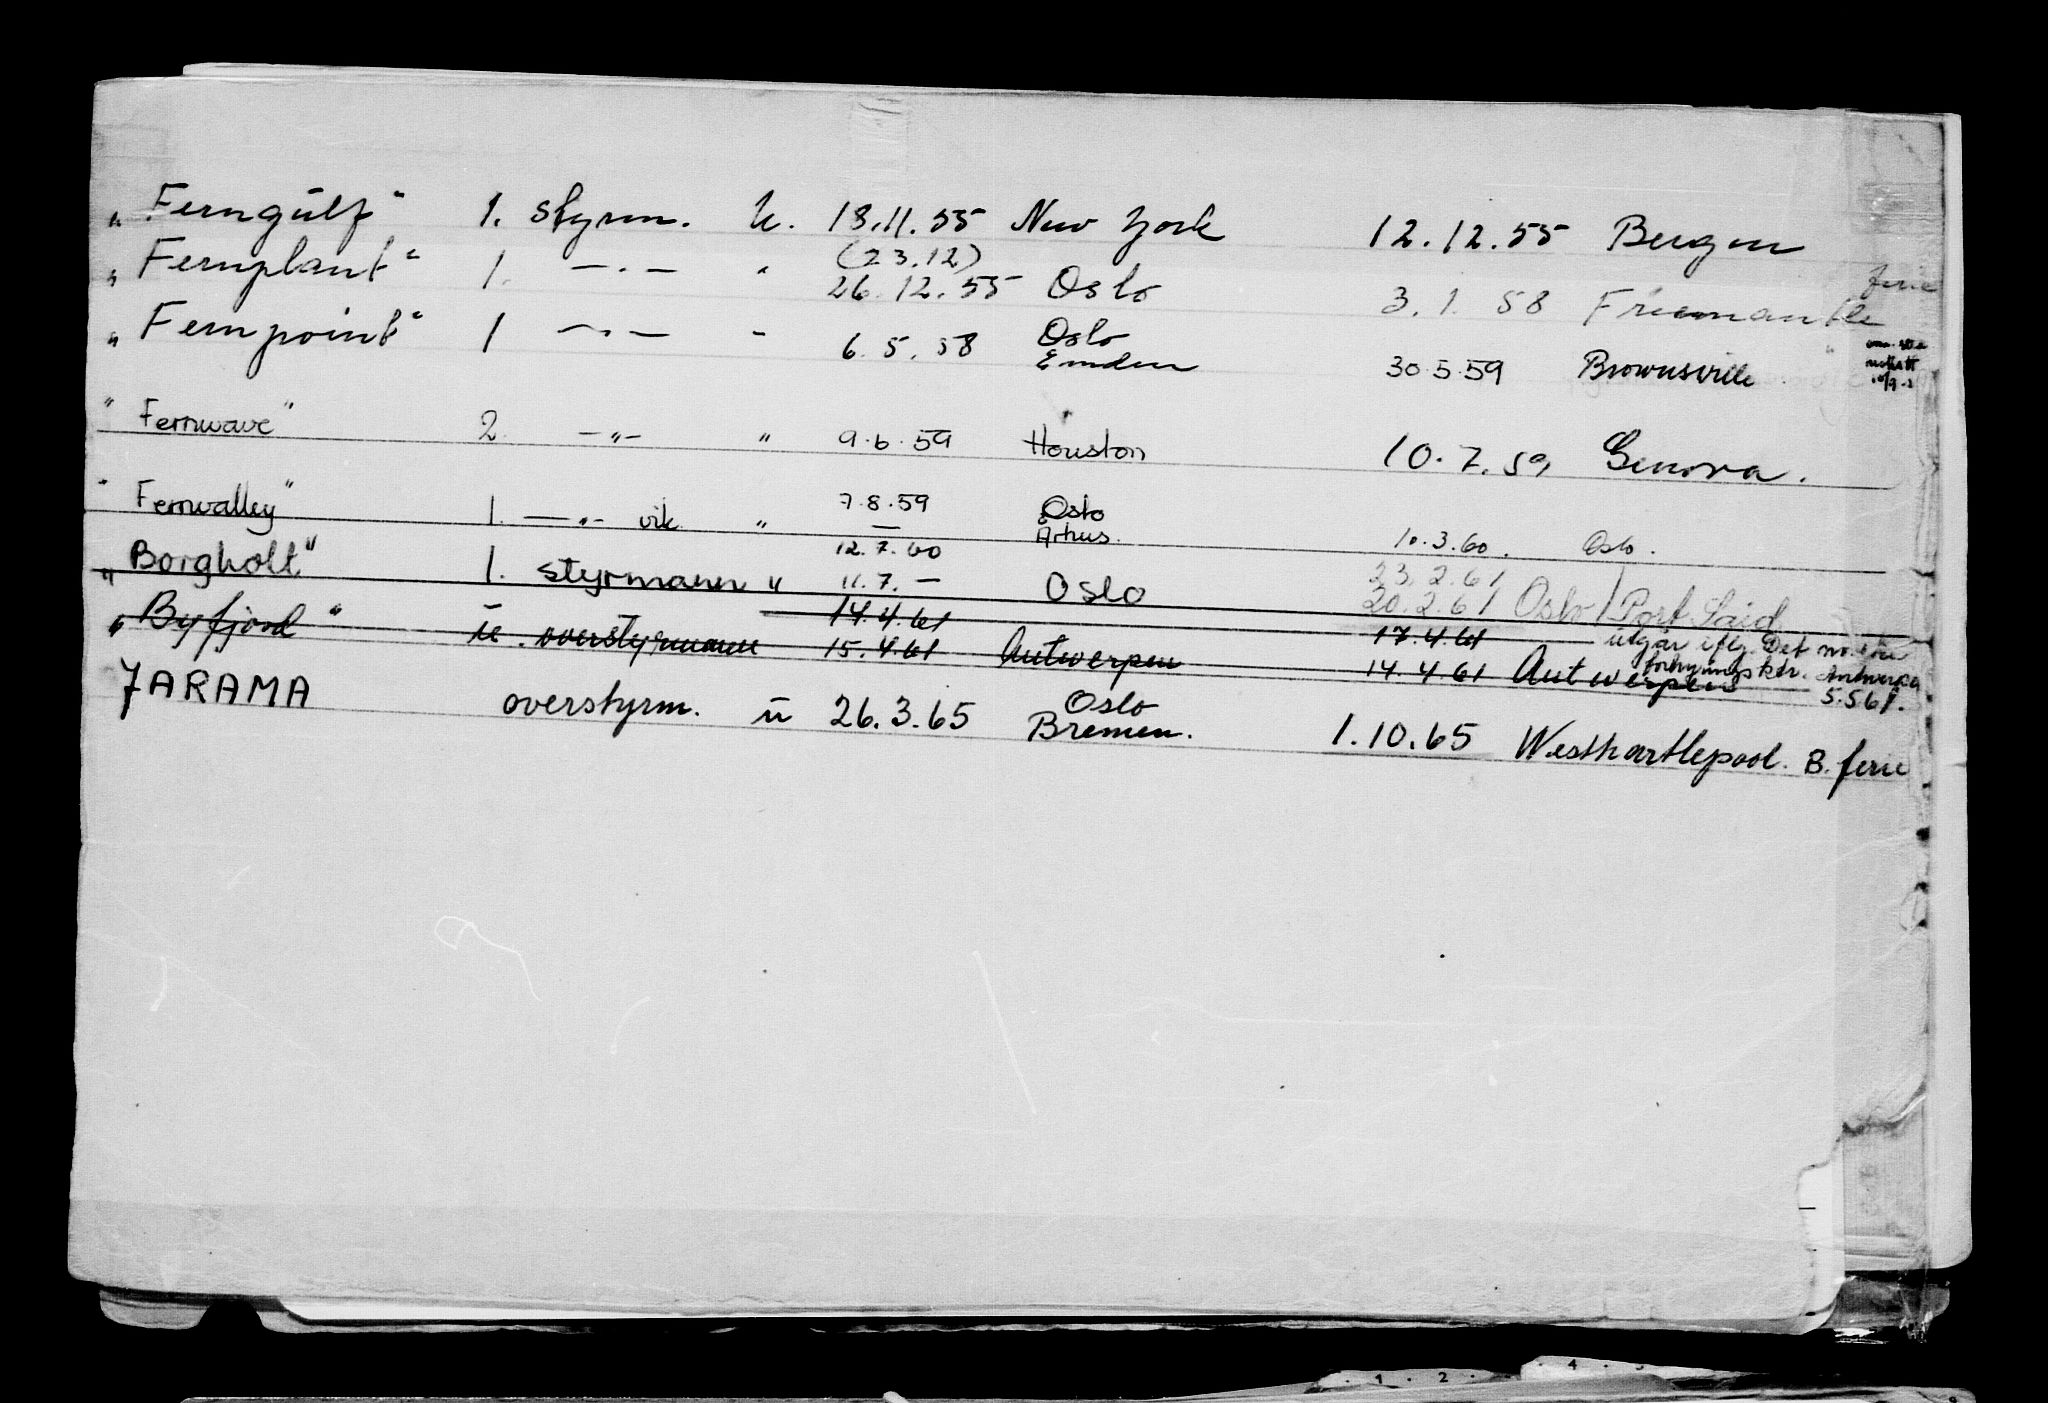 „ Ferngulf " 1. styrm. u. 18.11.55 New York 12.12.55 Bergen
(23.12)
„ Fernplant " 1. —.— " 26.12.55 Oslo 3.1.58 Friemantle ferie
„ Fernpoint " 1 —.— " 6.5.58 Oslo
Emden 30.5.59 Brownsville
" Fernwave " 2. —"— " 9.6.59 Houston 10.7.59 Genova.
" Fernvalley " 1. —"— vik. " 7.8.59 Oslo
Århus. 10.3.60. Oslo.
12.7.60 23.2.61
„ Borgholt " 1. styrmann " 11.7.— Oslo 20.2.61 Oslo / Port Said
14.4.61 17.4.61 utgår iflg. Det norske
„ Byfjord " u. overstyrmann 15.4.61 Antwerpen 14.4.61 Antwerpen forhyringsktr. Antwerpen
5.5.61.
JARAMA overstyrm. u 26.3.65 Oslo
Bremen. 1.10.65 Westhartlepool. B. ferie
1 2 4 5